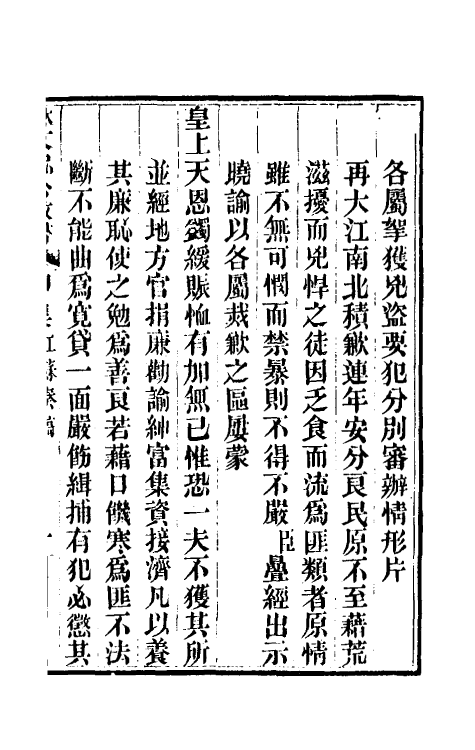 各屬拏獲兇盜要犯分別審辦情形片
再大江南北積歉連年安分良民原不至藉荒
滋擾而兇悍之徒因乏食而流爲匪類者原情
雖不無可憫而禁暴則不得不嚴臣疊經出示
曉諭以各屬烖歉之區屢蒙
皇上天恩蠲緩賑恤有加無已惟恐一夫不獲其所
並經地方官捐廉勸諭紳富集資接濟凡以養
其廉恥使之勉爲善良若藉口饑寒爲匪不法
斷不能曲爲寬貸一面嚴飭緝捕有犯必懲其